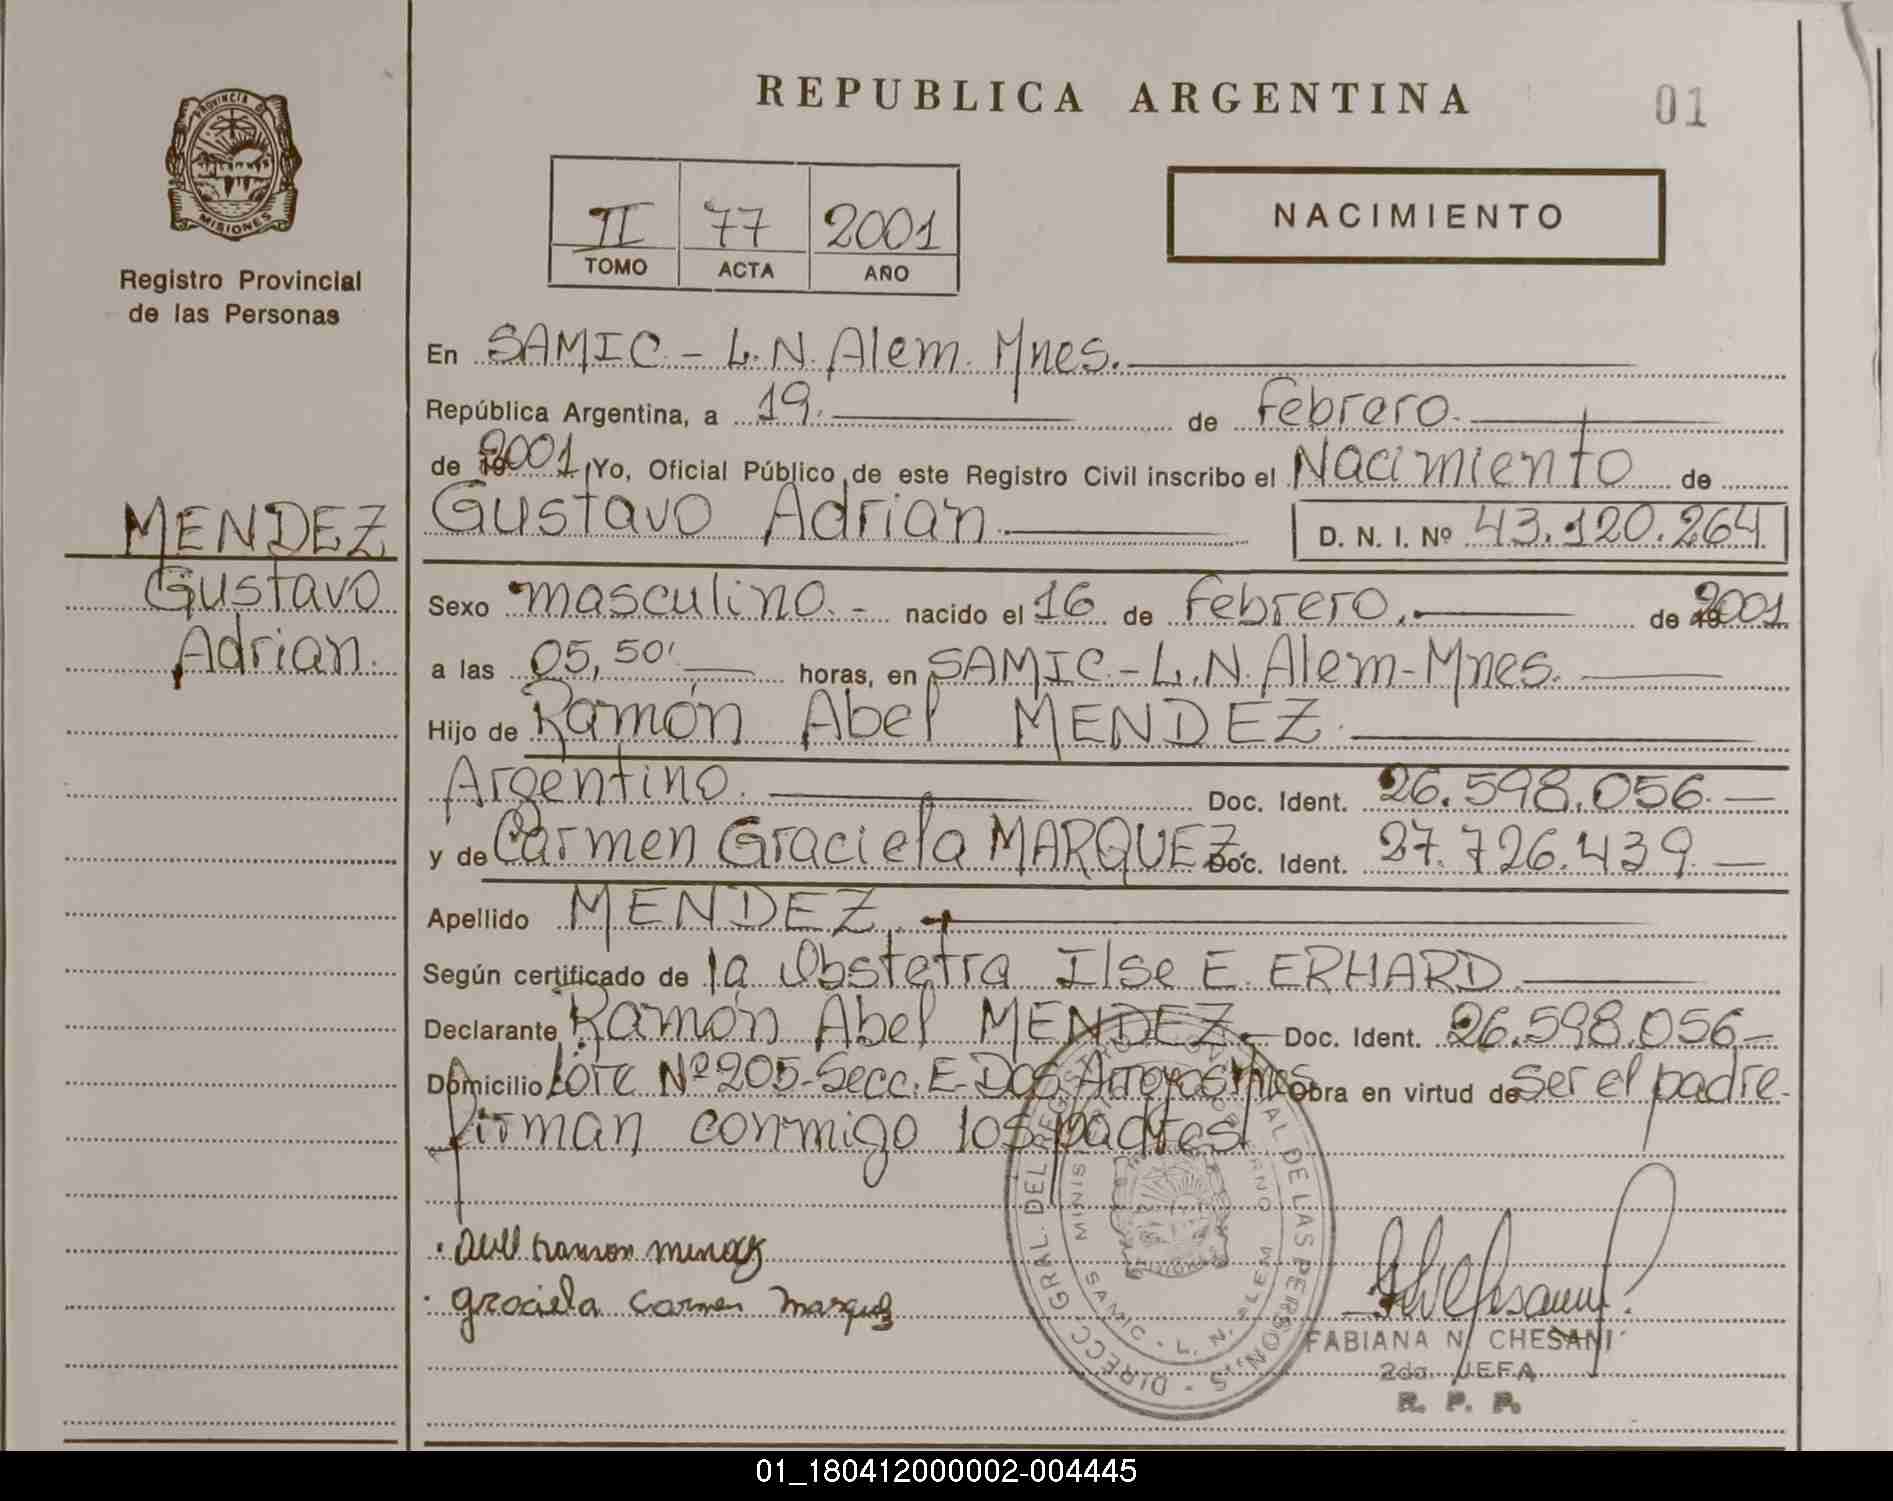 REPUBLICA ARGENTINA
01
PROVINCIA DE
MISIONES
Registro Provincial
de las Personas
II 77 2001
TOMO ACTA AÑO
NACIMIENTO
En SAMIC - L.N. Alem. Mnes.
República Argentina, a 19. de febrero.
de 2001 Yo, Oficial Público de este Registro Civil inscribo el Nacimiento de
Gustavo Adrian. D. N. I. Nº 43.120.264
MENDEZ
Gustavo
Adrian.
Sexo masculino. - nacido el 16 de febrero. de 2001
a las 05,50' horas, en SAMIC - L.N. Alem - Mnes.
Hijo de Ramón Abel MENDEZ.
Argentino. Doc. Ident. 26.598.056. —
y de Carmen Graciela MARQUEZ. Doc. Ident. 27.726.439. —
Apellido MENDEZ.
Según certificado de la Obstetra Ilse E. ERHARD.
Declarante Ramón Abel MENDEZ. Doc. Ident. 26.598.056.-
Domicilio Lote Nº 205-Secc. E-Dos Arroyos Mnes Obra en virtud de Ser el padre.-
firman conmigo los padres
DIRECC. GRAL. DEL REGISTRO PROVINCIAL DE LAS PERSONAS
SAMIC - L. N. ALEM
ramon mendez
graciela carmen marquez
FABIANA N. CHESANI
2da. JEFA
R. P. P.
01_180412000002-004445